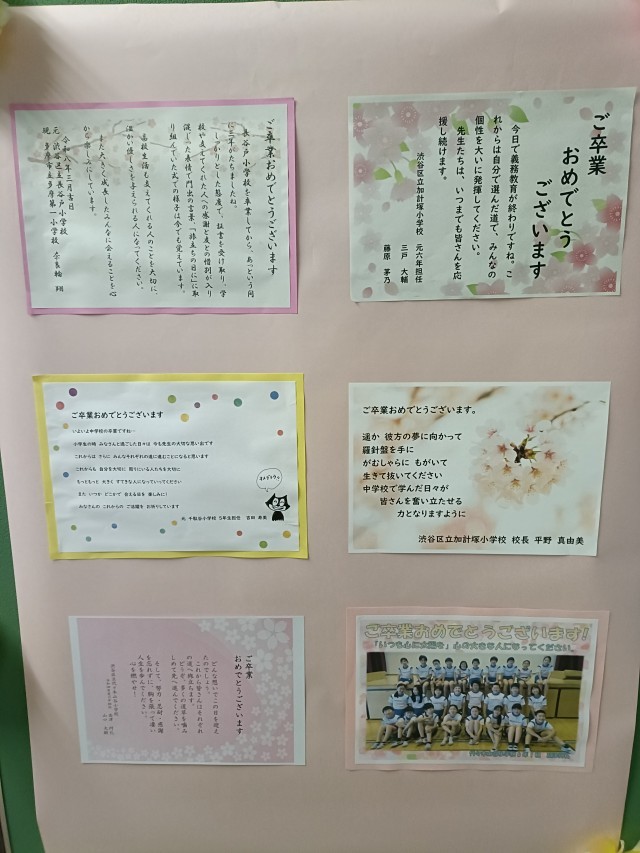 ご卒業おめでとうございます
長谷戸小学校を卒業してから、あっという間
に三年がたちましたね。
しっかりとした態度で、証書を受け取り、学
校や支えてくれた人への感謝と友との惜別が入り
混じった表情で門出の言葉、「旅立ちの日に」に取
り組んでいた式での様子は今でも覚えています。
高校生活も支えてくれる人のことを大切に、
温かい優しさを与えられる人になってください。
また大きく成長したみんなに会えることを心
から楽しみにしています。
令和八年三月吉日
元 渋谷区立長谷戸小学校
現 多摩市立多摩第一小学校 奈良輪 翔
ご卒業
おめでとう
ございます
今日で義務教育が終わりですね。こ
れからは自分で選んだ道で、みんなの
個性を大いに発揮してください。
先生たちは、いつまでも皆さんを応
援し続けます。
渋谷区立加計塚小学校 元六年担任
三戸 大輔
藤原 茅乃
ご卒業おめでとうございます
いよいよ中学校の卒業ですね…
小学生の時 みなさんと過ごした日々は 今も先生の大切な思い出です
これからは さらに みんなそれぞれの道に進むことになると思います
これからも 自分を大切に 周りにいる人たちを大切に
もっともっと 大きく すてきな人になっていってください
また いつか どこかで 会える日を 楽しみに!
みなさんの これからの ご活躍を お祈りしています
元 千駄谷小学校 5年生担任 吉田
おめでとう
ご卒業おめでとうございます。
遥か 彼方の夢に向かって
羅針盤を手に
がむしゃらに もがいて
生きて抜いてください
中学校で学んだ日々が
皆さんを奮い立たせる
力となりますように
渋谷区立加計塚小学校 校長 平野 真由美
ご卒業
おめでとうございます
どんな想いでこの日を迎え
たのでしょう。
これから皆さんはそれぞれ
の道へ旅立ちます。
どうぞ、多くの道草を噛み
しめて先へ進んでください。
そして、努力・忍耐・感謝
を忘れずに、胸を張って凄い
人生を歩んでください。
心を燃やせ!
ご卒業おめでとうございます!
「いつも心に太陽を」 心の大きな人になってください。